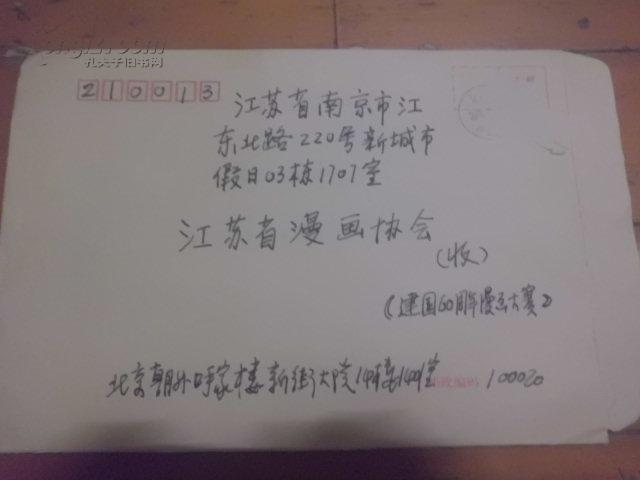 孔夫子旧书网
210013
江苏省南京市江
东北路220号新城市
假日03栋1707室
江苏省漫画协会
(收)
《建国60周年漫画大赛》
北京朝外呼家楼新街大院 邮政编码 100020